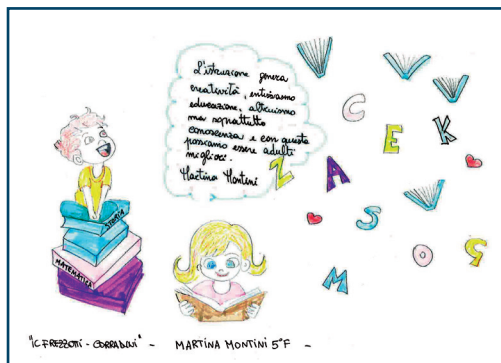 L'istruzione genera
creatività, entusiasmo
educazione, altruismo
ma soprattutto
conoscenza e con questa
possiamo essere adulti
migliori.
Martina Montini
C
E
K
Z
A
S
O
Ç
M
STORIA
MATEMATICA
"IC FREZZOTTI - CORRADINI" - MARTINA MONTINI 5°F -